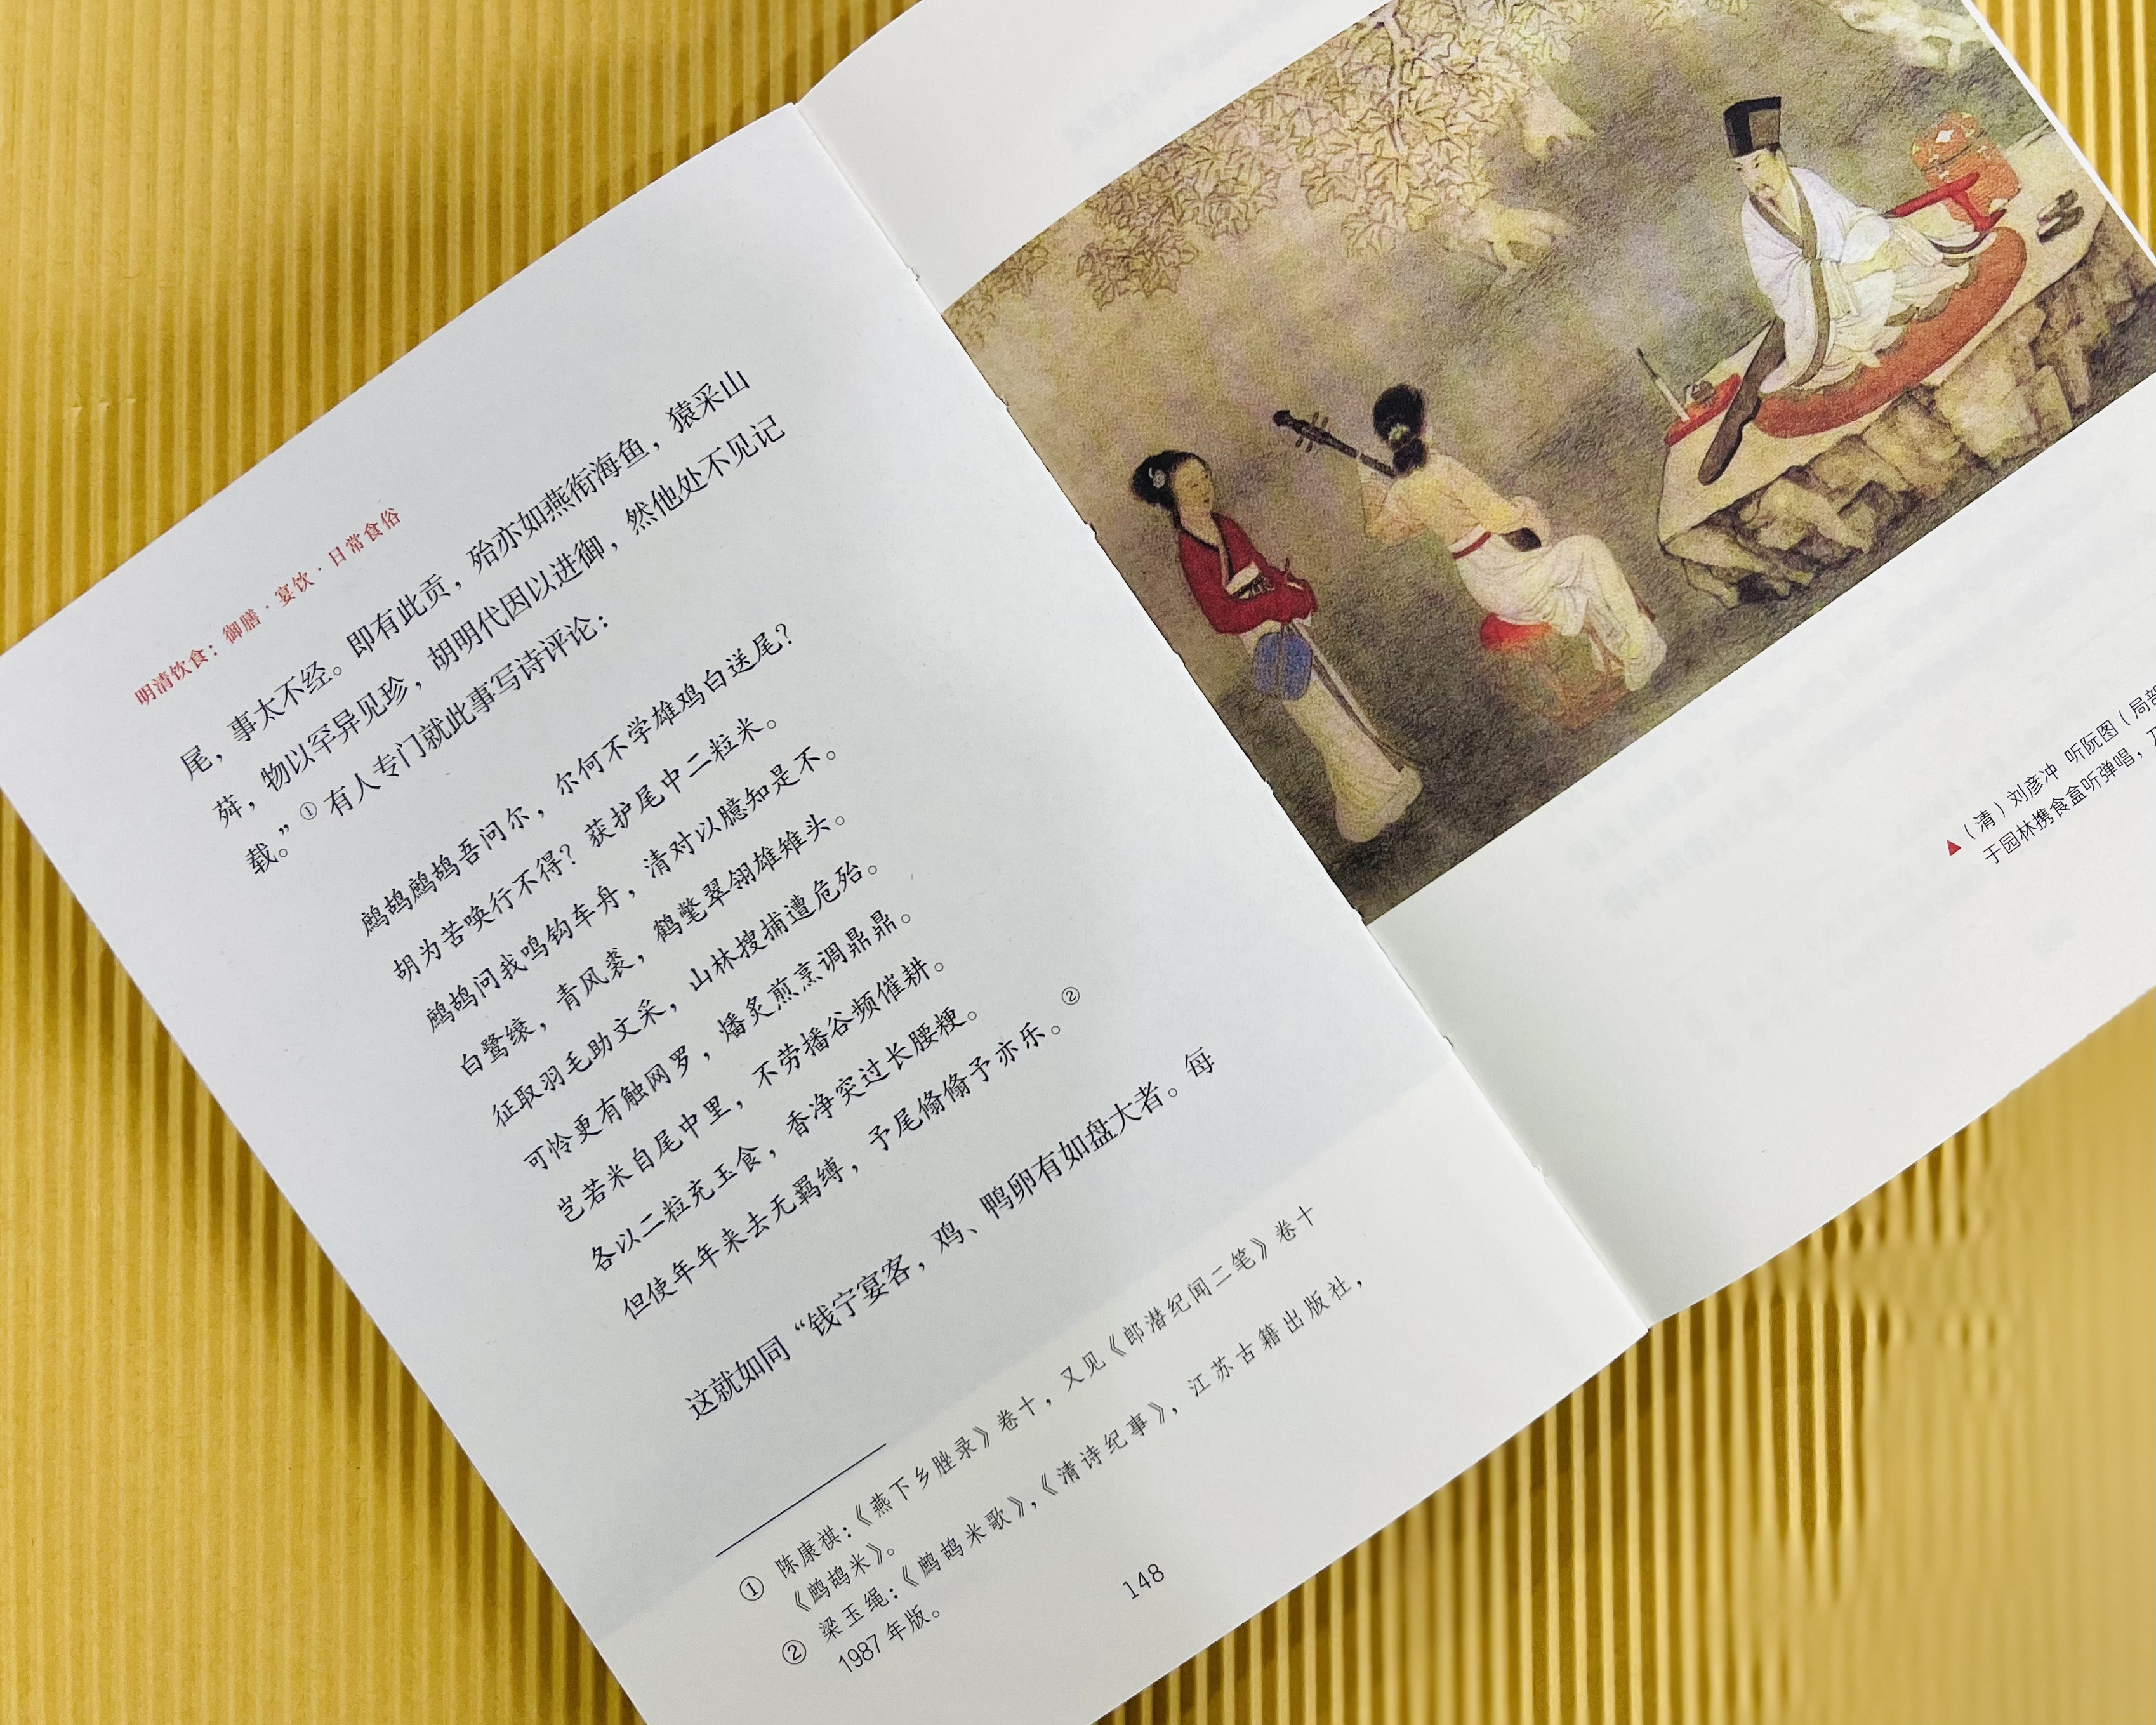 明清饮食：御膳·宴饮·日常食俗
尾，事太不经。即有此贡，殆亦如燕衔海鱼，猿采山
荈，物以罕异见珍，胡明代因以进御，然他处不见记
载。”①有人专门就此事写诗评论：
鹧鸪鹧鸪吾问尔，尔何不学雄鸡白送尾？
胡为苦唤行不得？获护尾中二粒米。
鹧鸪问我鸣钩车舟，清对以臆知是不。
白鹭缞，青风裘，鹤氅翠翎雄雉头。
征取羽毛助文采，山林搜捕遭危殆。
可怜更有触网罗，燔炙煎烹调鼎鼎。
岂若米自尾中里，不劳播谷频催耕。
各以二粒充玉食，香净突过长腰粳。
但使年年来去无羁缚，予尾翛翛予亦乐。②
这就如同“钱宁宴客，鸡、鸭卵有如盘大者。每
① 陈康祺：《燕下乡脞录》卷十，又见《郎潜纪闻二笔》卷十
《鹧鸪米》。
② 梁玉绳：《鹧鸪米歌》，《清诗纪事》，江苏古籍出版社，
1987年版。
148
▲（清）刘彦冲 听阮图（局部
于园林携食盒听弹唱，